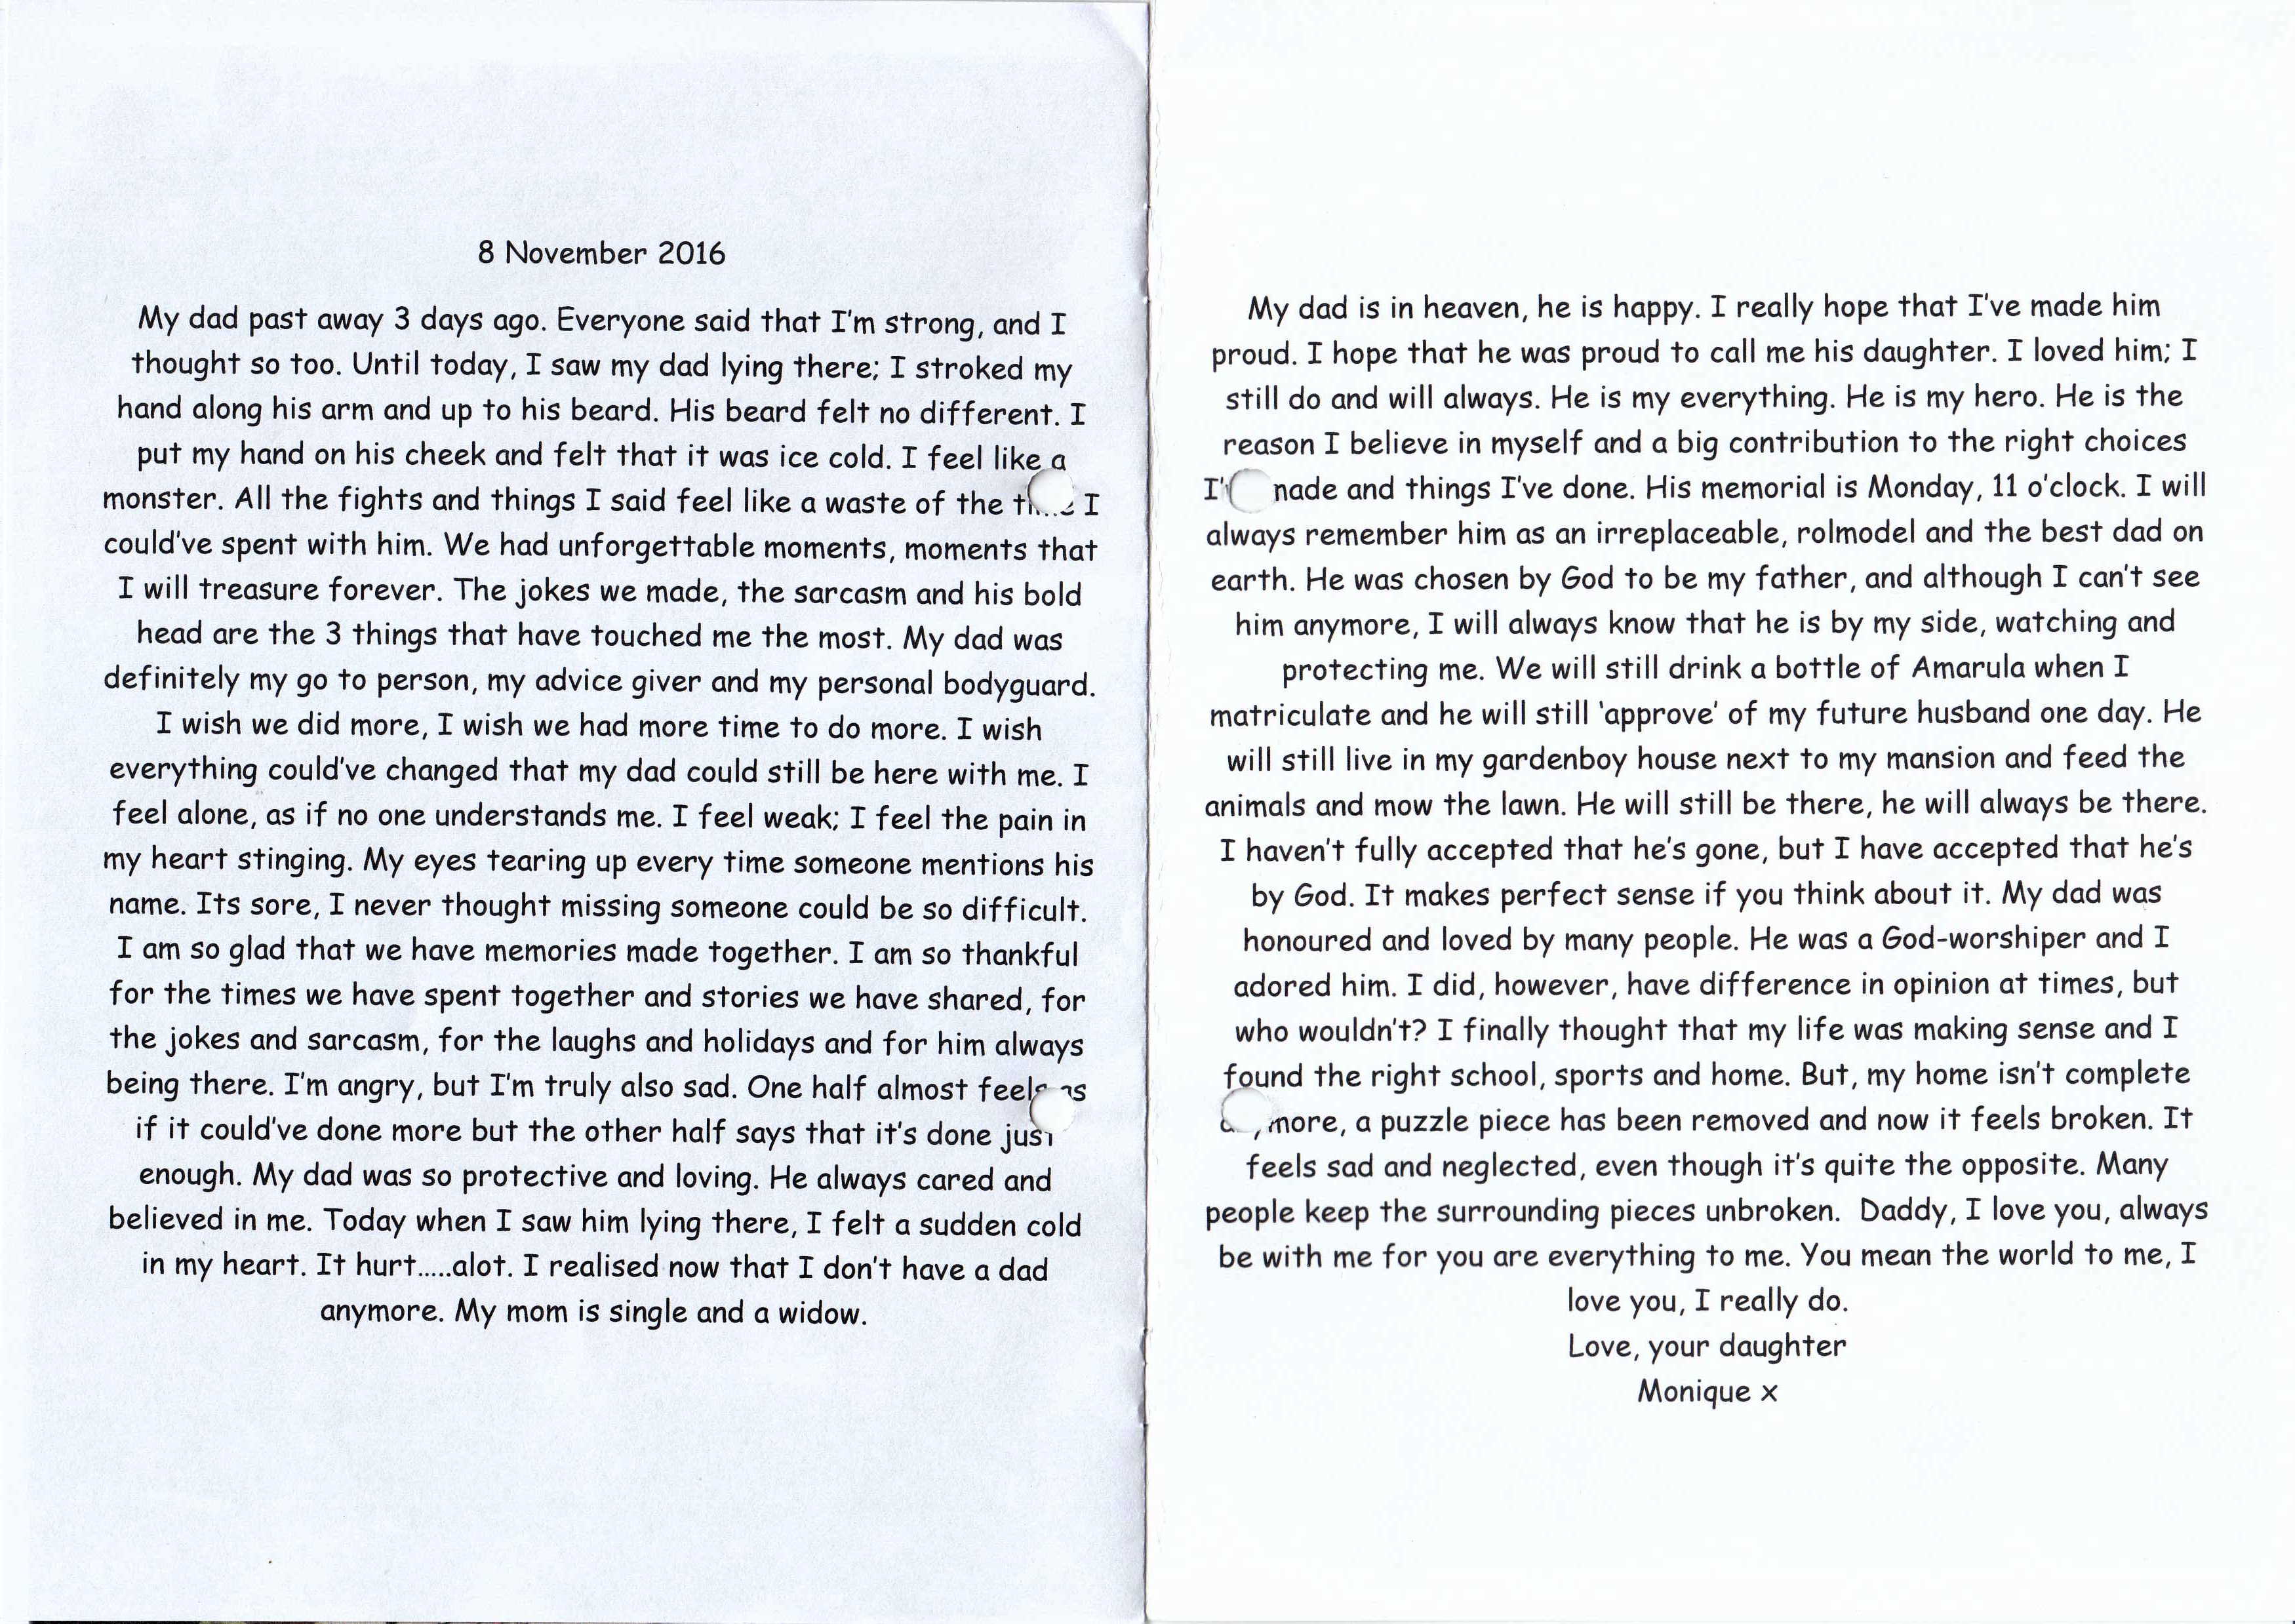 8 November 2016
My dad past away 3 days ago. Everyone said that I'm strong, and I
thought so too. Until today, I saw my dad lying there; I stroked my
hand along his arm and up to his beard. His beard felt no different. I
put my hand on his cheek and felt that it was ice cold. I feel like a
monster. All the fights and things I said feel like a waste of the I
could've spent with him. We had unforgettable moments, moments that
I will treasure forever. The jokes we made, the sarcasm and his bold
head are the 3 things that have touched me the most. My dad was
definitely my go to person, my advice giver and my personal bodyguard.
I wish we did more, I wish we had more time to do more. I wish
everything could've changed that my dad could still be here with me. I
feel alone, as if no one understands me. I feel weak; I feel the pain in
my heart stinging. My eyes tearing up every time someone mentions his
name. Its sore, I never thought missing someone could be so difficult.
I am so glad that we have memories made together. I am so thankful
for the times we have spent together and stories we have shared, for
the jokes and sarcasm, for the laughs and holidays and for him always
being there. I'm angry, but I'm truly also sad. One half almost feels as
if it could've done more but the other half says that it's done just
enough. My dad was so protective and loving. He always cared and
believed in me. Today when I saw him lying there, I felt a sudden cold
in my heart. It hurt.....alot. I realised now that I don't have a dad
anymore. My mom is single and a widow.
My dad is in heaven, he is happy. I really hope that I've made him
proud. I hope that he was proud to call me his daughter. I loved him; I
still do and will always. He is my everything. He is my hero. He is the
reason I believe in myself and a big contribution to the right choices
made and things I've done. His memorial is Monday, 11 o'clock. I will
always remember him as an irreplaceable, rolmodel and the best dad on
earth. He was chosen by God to be my father, and although I can't see
him anymore, I will always know that he is by my side, watching and
protecting me. We will still drink a bottle of Amarula when I
matriculate and he will still 'approve' of my future husband one day. He
will still live in my gardenboy house next to my mansion and feed the
animals and mow the lawn. He will still be there, he will always be there.
I haven't fully accepted that he's gone, but I have accepted that he's
by God. It makes perfect sense if you think about it. My dad was
honoured and loved by many people. He was a God-worshiper and I
adored him. I did, however, have difference in opinion at times, but
who wouldn't? I finally thought that my life was making sense and I
found the right school, sports and home. But, my home isn't complete
anymore, a puzzle piece has been removed and now it feels broken. It
feels sad and neglected, even though it's quite the opposite. Many
people keep the surrounding pieces unbroken. Daddy, I love you, always
be with me for you are everything to me. You mean the world to me, I
love you, I really do.
Love, your daughter
Monique x